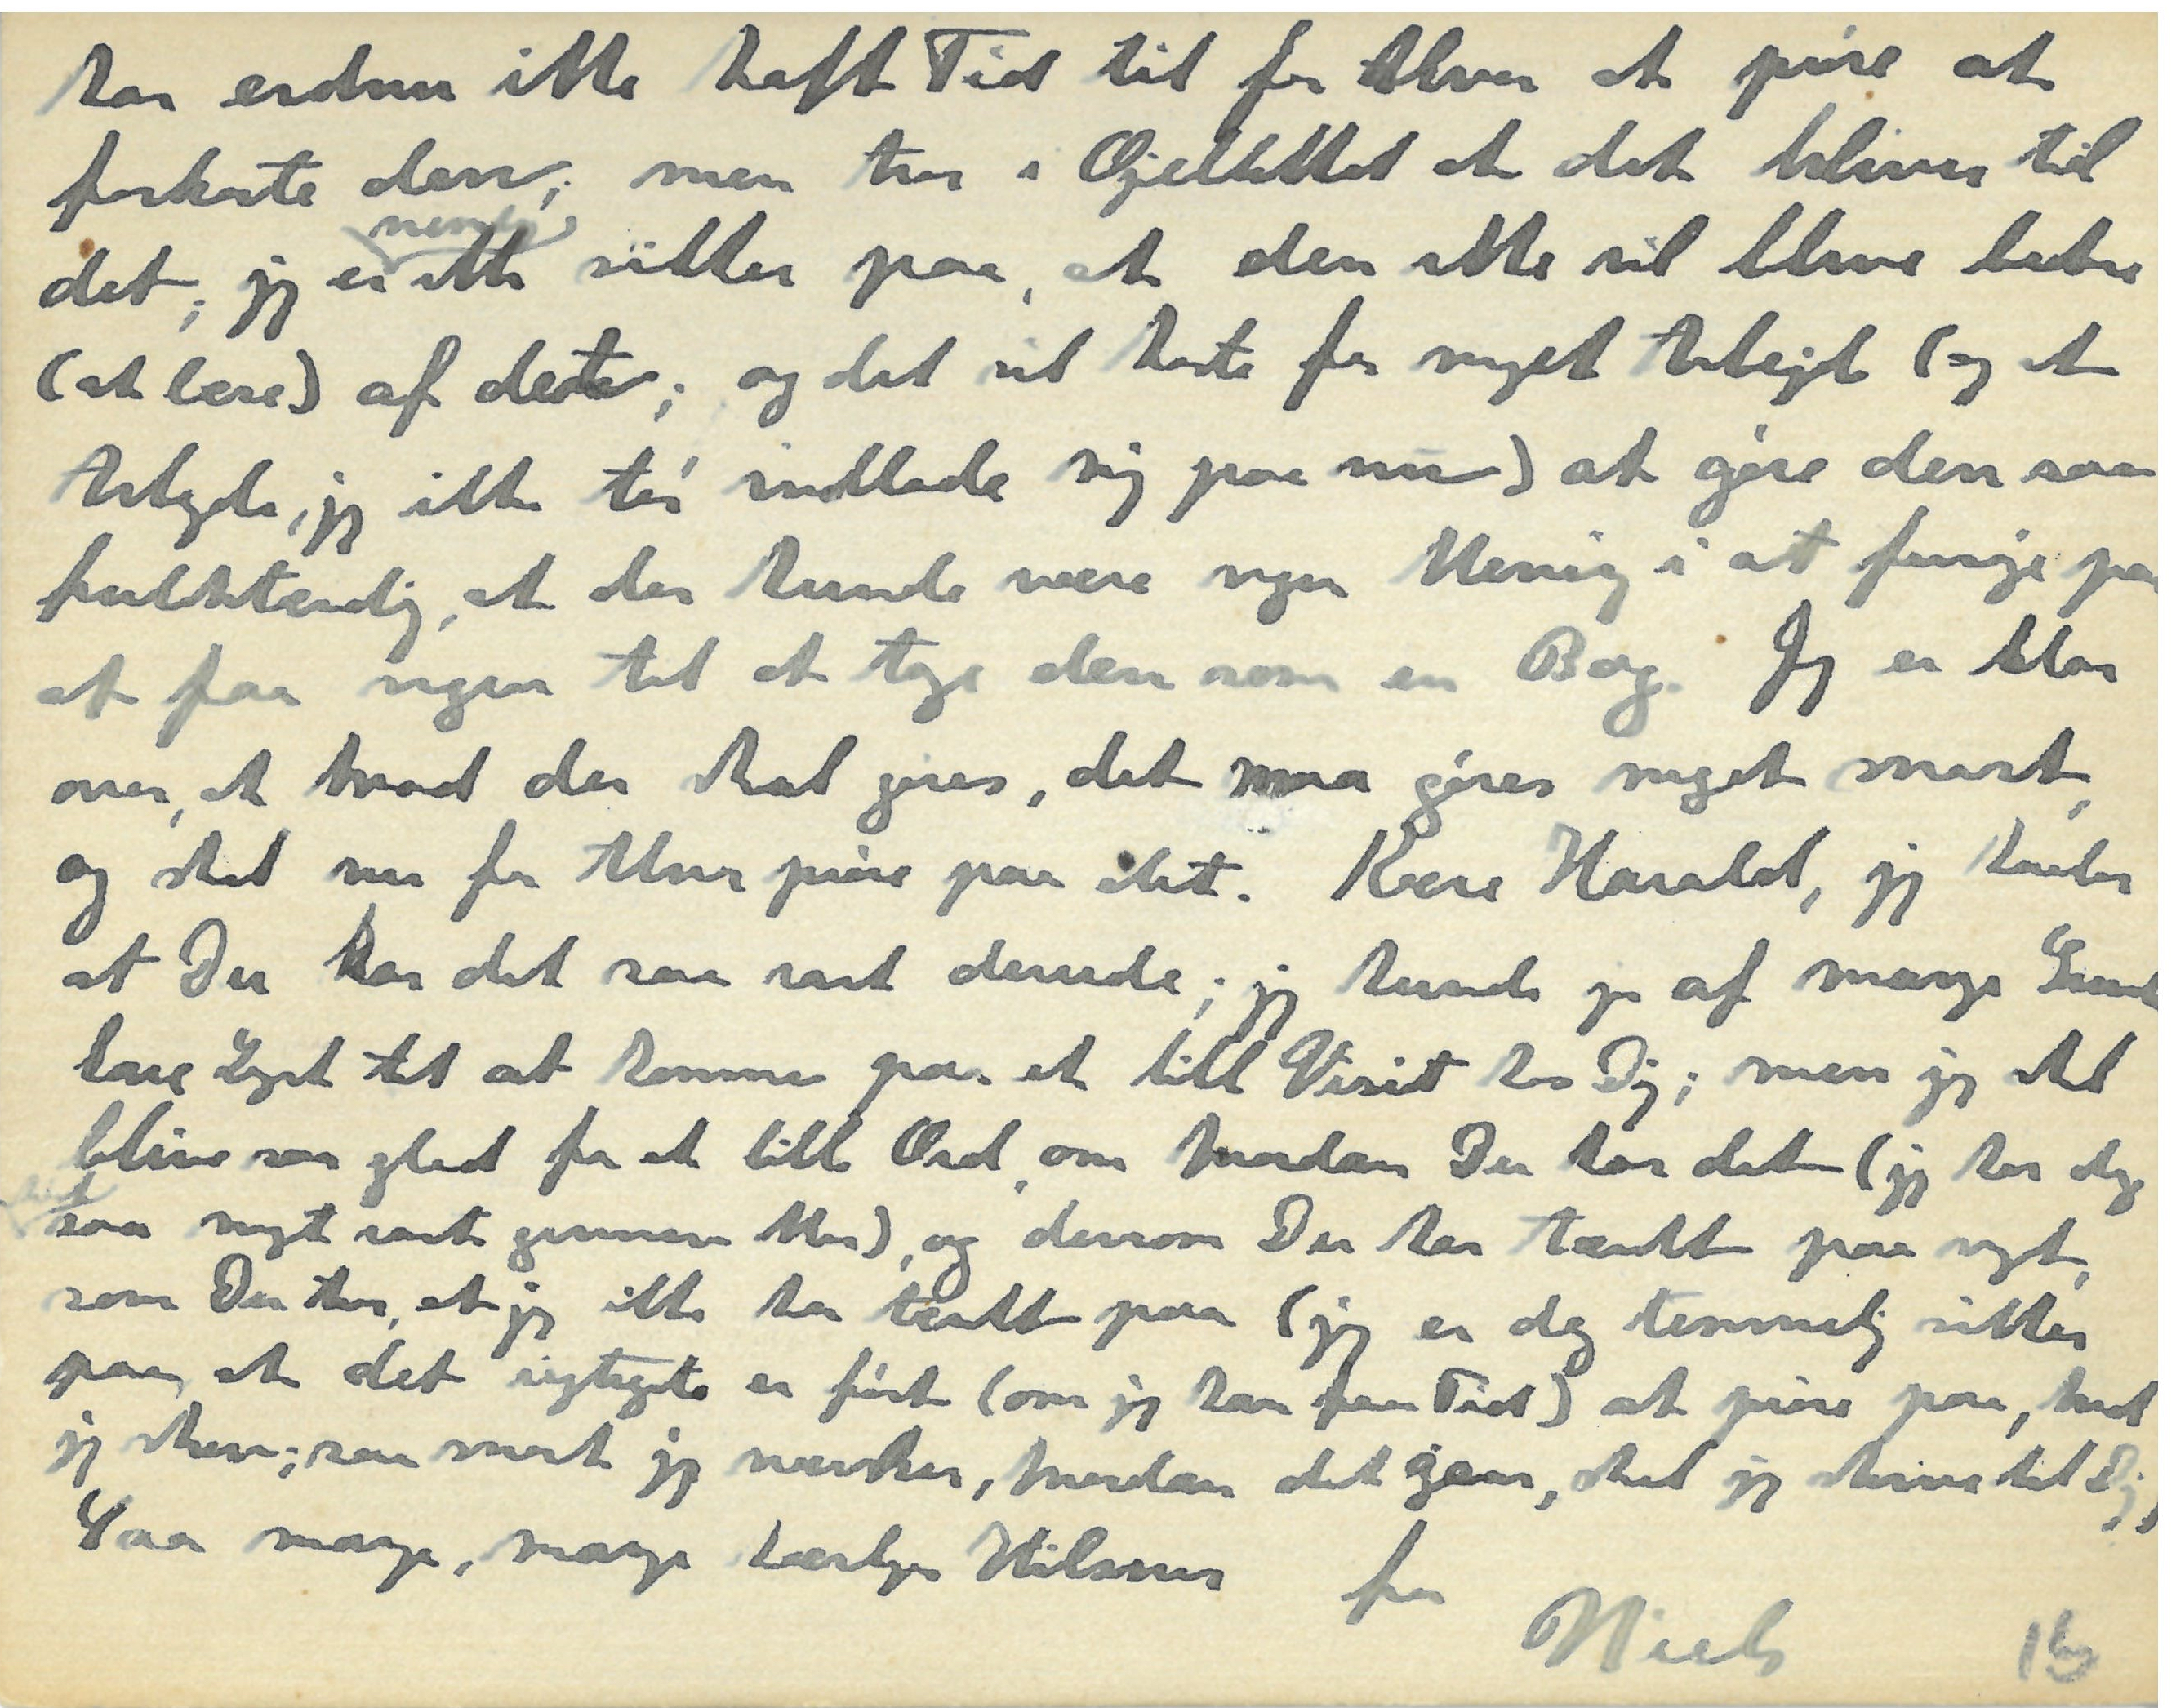 har endnu ikke haft Tid til for Alvor at prøve at
forkorte den; men tror i Øjeblikket at det bliver til
det; jeg er nemlig ikke sikker paa, at den ikke vil blive bedre
(at læse) af dette; og det vil koste for meget Arbejde (og et
Arbejde, jeg ikke tør indlade sig paa nu) at gøre den saa
fuldstændig, at der kunde være nogen Mening i at forsøge paa
at faa nogen til at tage den som en Bog. Jeg er klar
over, at hvad der skal gøres, det maa gøres meget snart,
og skal nu for Alvor prøve paa det. Kære Harald, jeg haaber
at Du har det saa rart derude; jeg kunde jo af mange Grunde
have Lyst til at komme paa et lille Visit hos Dig; men jeg skal
blive saa glad for et lille Ord, om hvordan Du har det (jeg har dog
hørt saa meget rart gennem Mor), og dersom Du har tænkt paa noget,
som Du tror, at jeg ikke har tænkt paa (jeg er dog temmelig sikker
paa, at det rigtigste er først (om jeg kan faa Tid) at prøve paa, hvad
jeg skrev; saa snart jeg mærker, hvordan det gaar, skal jeg skrive til Dig).
Saa mange, mange kærlige Hilsner fra
Niels
15